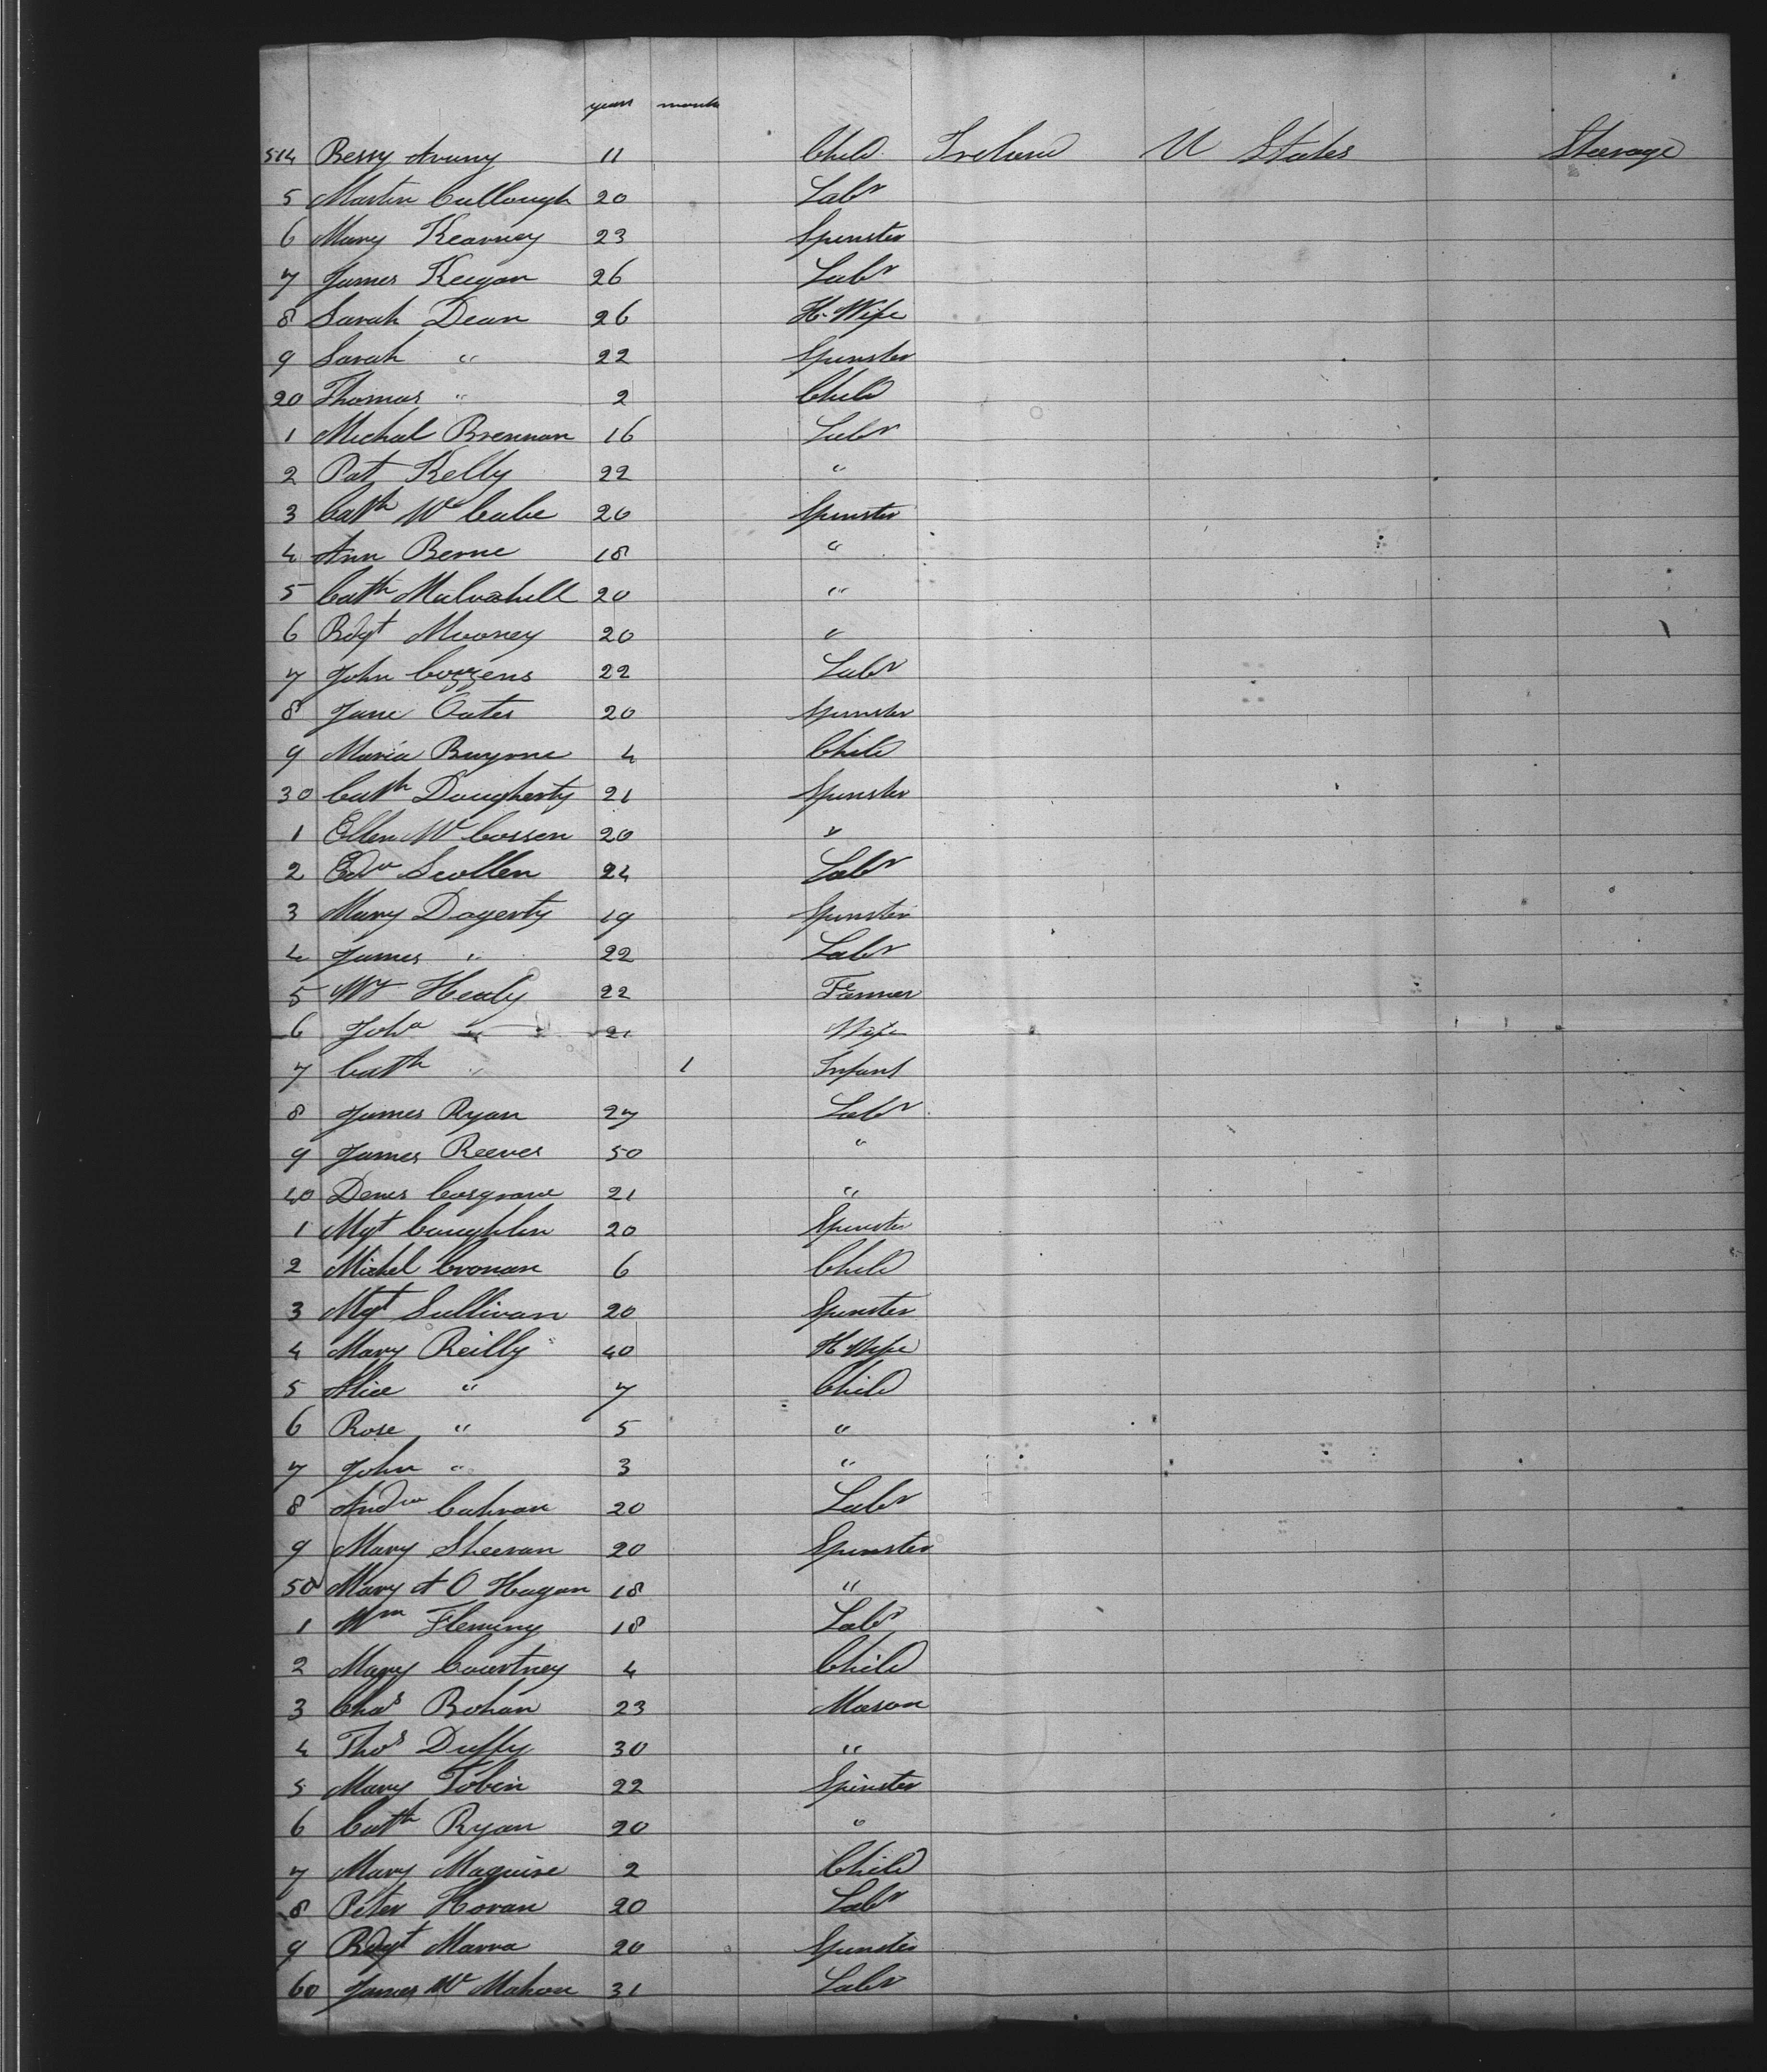 years months
514 Bessy Aruny 11 Child Ireland U States Steerage
5 Martin Cullough 20 Labr
6 Mary Kearney 23 Spinster
7 James Keegan 26 Labr
8 Sarah Dean 26 H. Wife
9 Sarah " 22 Spinster
20 Thomas " 2 Child
1 Michal Brennan 16 Labr
2 Pat Kelly 22 "
3 Cath Mc Cabe 20 Spinster
4 Ann Berne 18 "
5 Cath Mulvahill 20 "
6 Bdgt Mooney 20 "
7 John Cozzens 22 Labr
8 Jane Oates 20 Spinster
9 Maria Buyrne 4 Child
30 Cath Dougherty 21 Spinster
1 Ellen Mc Cossen 20 "
2 Edw Scollen 24 Labr
3 Mary Dogerty 19 Spinster
4 James " 22 Labr
5 Healy 22 Farmer
6 Joha " 21 Wife
7 Cath " 1 Infant
8 James Ryan 27 Labr
9 James Reeves 50 "
40 Denis Cosgrave 21 "
1 Mgt Coughlin 20 Spinster
2 Michel Cronan 6 Child
3 Mgt Sullivan 20 Spinster
4 Mary Reilly 40 H Wife
5 Alice " 7 Child
6 Rose " 5 "
7 John " 3 "
8 Andw Calvan 20 Labr
9 Mary Sheeran 20 Spinster
50 Mary A O Hagan 18 "
1 Wm Fleming 18 Labr
2 Mary Courtney 4 Child
3 Chas Bohan 23 Mason
4 Thos Duffy 30 "
5 Mary Tobin 22 Spinster
6 Cath Ryan 20 "
7 Mary Maguire 2 Child
8 Peter Horan 20 Labr
9 Bdgt Marra 20 Spinster
60 James Mc Mahon 31 Labr